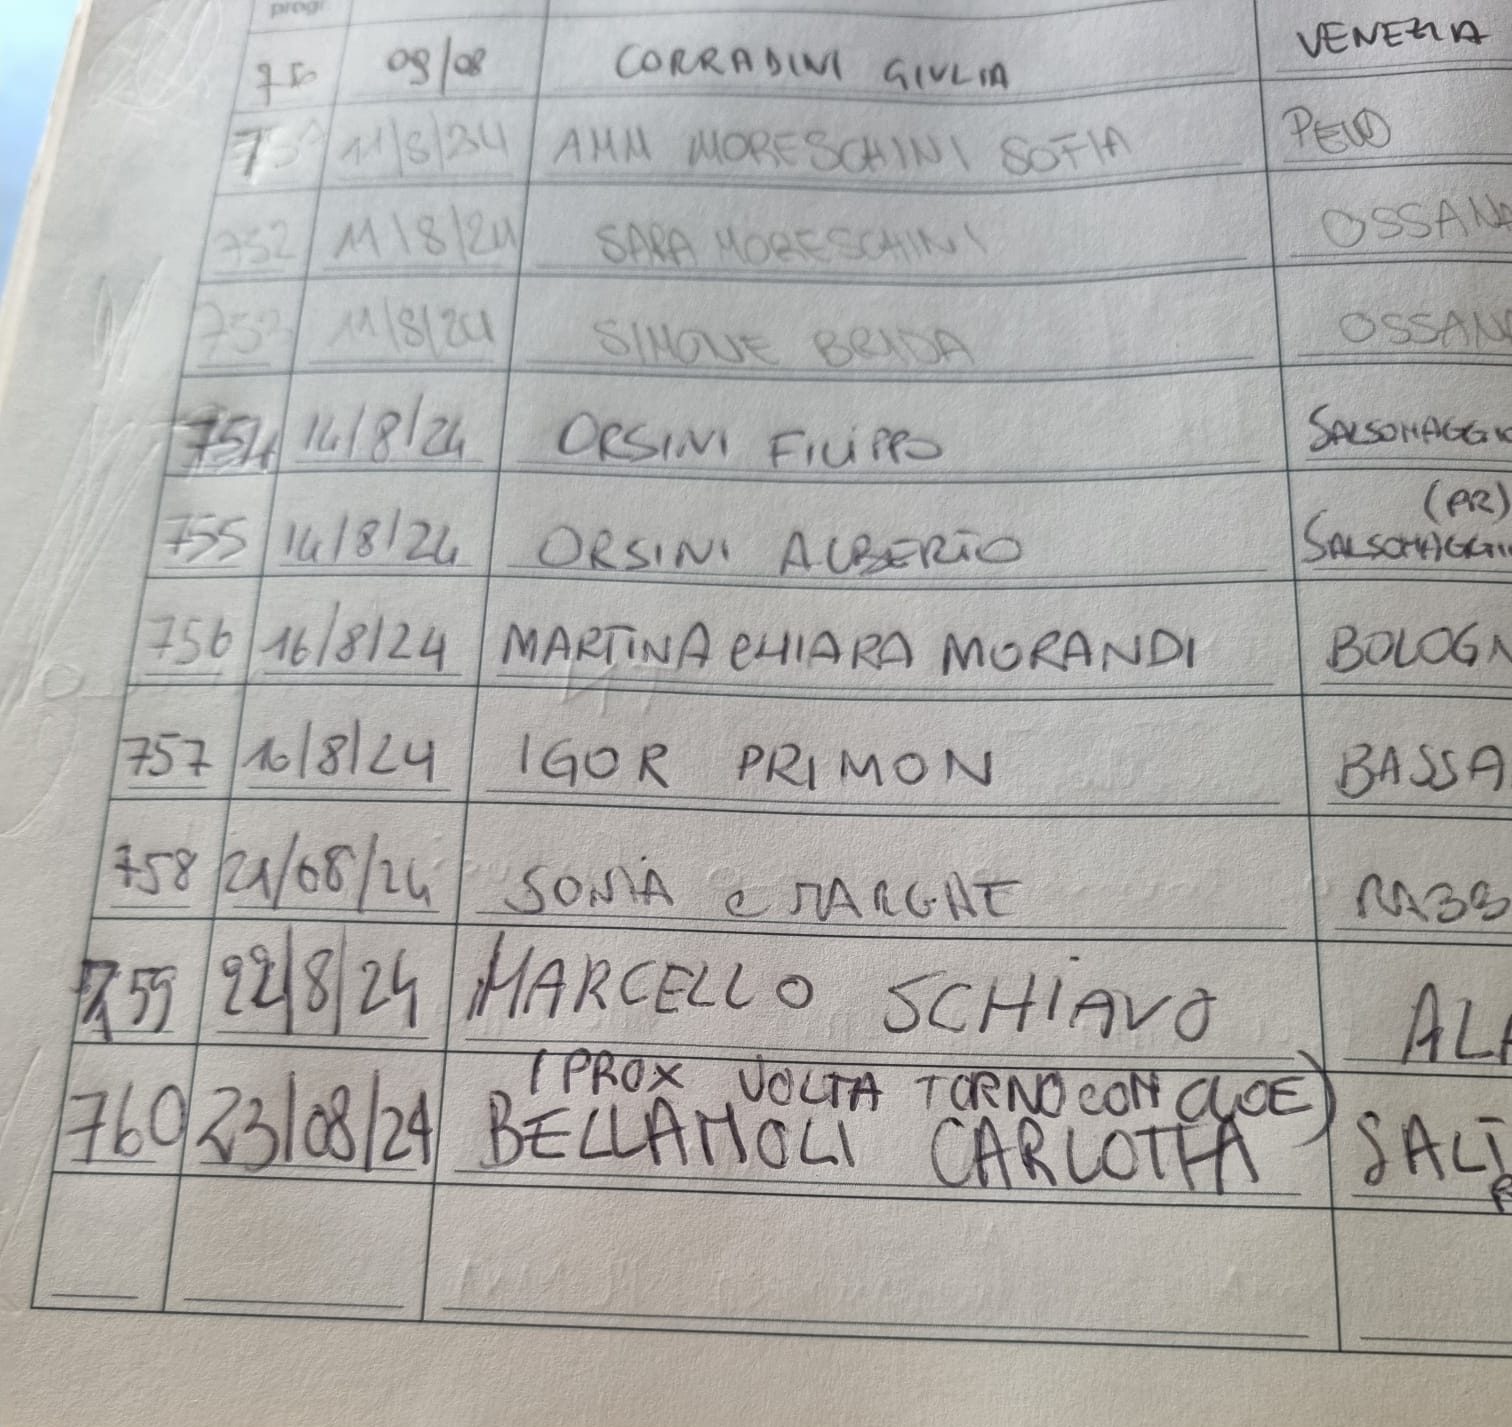 progr.
750 09/08 CORRADINI GIULIA VENEZIA
751 11/8/24 AMM MORESCHINI SOFIA PEIO
752 11/8/24 SARA MORESCHINI OSSANA
753 11/8/24 SIMONE BRIDA OSSANA
754 14/8/24 ORSINI FILIPPO SALSOMAGGIO
(PR)
755 14/8/24 ORSINI ALBERTO SALSOMAGGI
756 16/8/24 MARTINA CHIARA MORANDI BOLOGN
757 16/8/24 IGOR PRIMON BASSA
758 21/08/24 SONIA e MARGHE RABB
759 22/8/24 MARCELLO SCHIAVO ALA
(PROX VOLTA TORNO CON CLOE)
760 23/08/24 BELLAMOLI CARLOTTA SALI